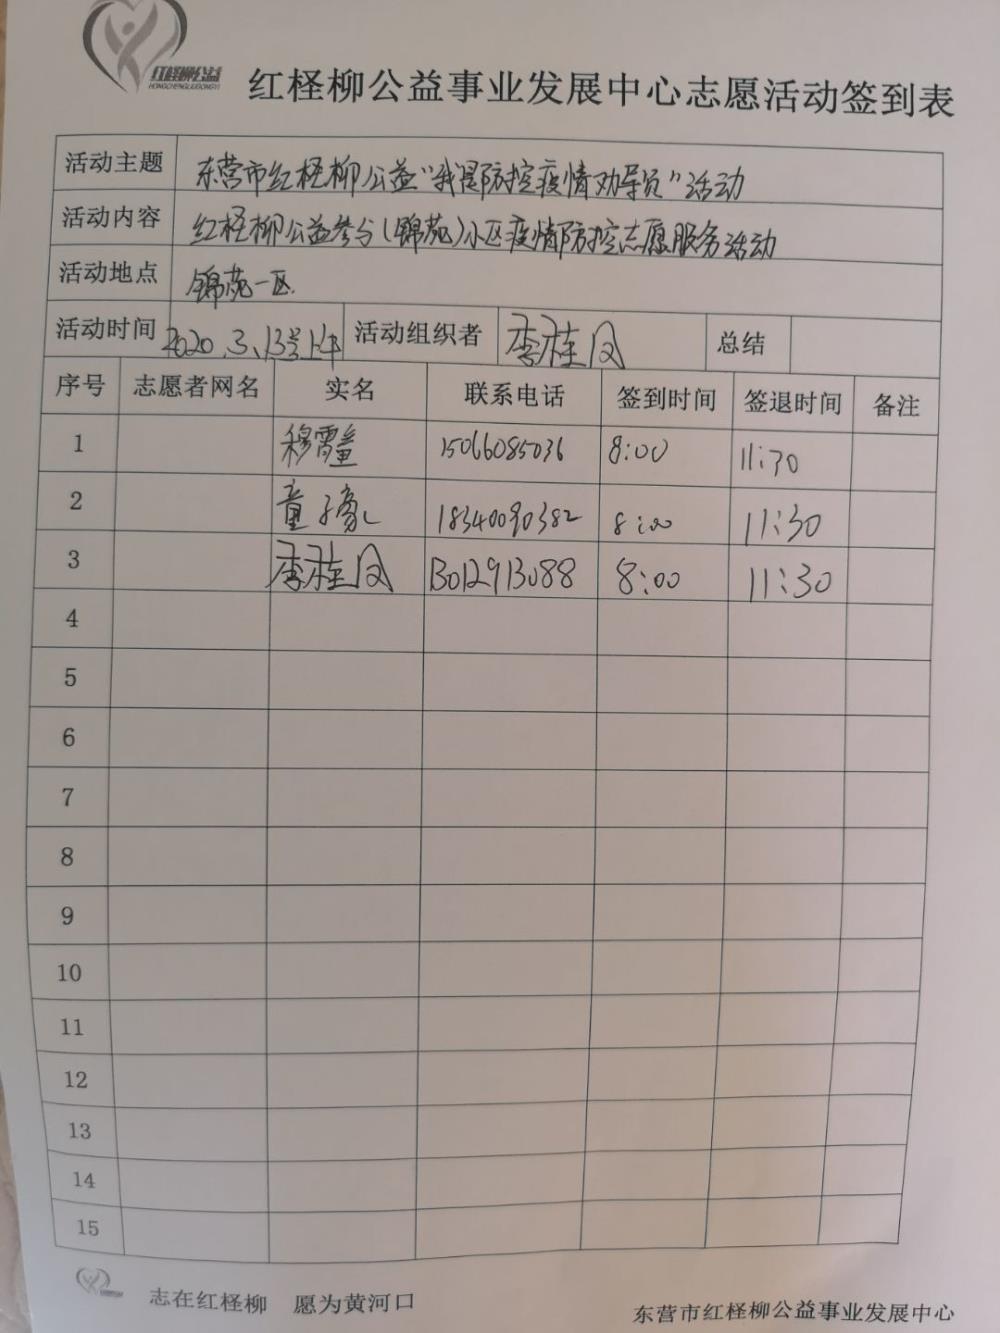 红柽柳公益
HONGCHENGLIUGONGYI
红柽柳公益事业发展中心志愿活动签到表
活动主题 东营市红柽柳公益“我是防控疫情劝导员”活动
活动内容 红柽柳公益参与(锦苑)小区疫情防控志愿服务活动
活动地点 锦苑一区
活动时间 2020.3.13号上午 活动组织者 李桂凤 总结
序号 志愿者网名 实名 联系电话 签到时间 签退时间 备注
1 穆 15066085036 8:00 11:30
2 童子豪 18340090382 8:00 11:30
3 李桂凤 13012913088 8:00 11:30
4
5
6
7
8
9
10
11
12
13
14
15
志在红柽柳 愿为黄河口
东营市红柽柳公益事业发展中心